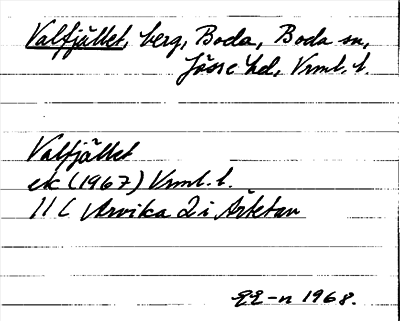 Valfjället, berg, Boda, Boda sn,
Jösse hd, Vrml. l.
Valfjället
ek (1967) Vrml. l.
11 C Arvika 2 i
1968.